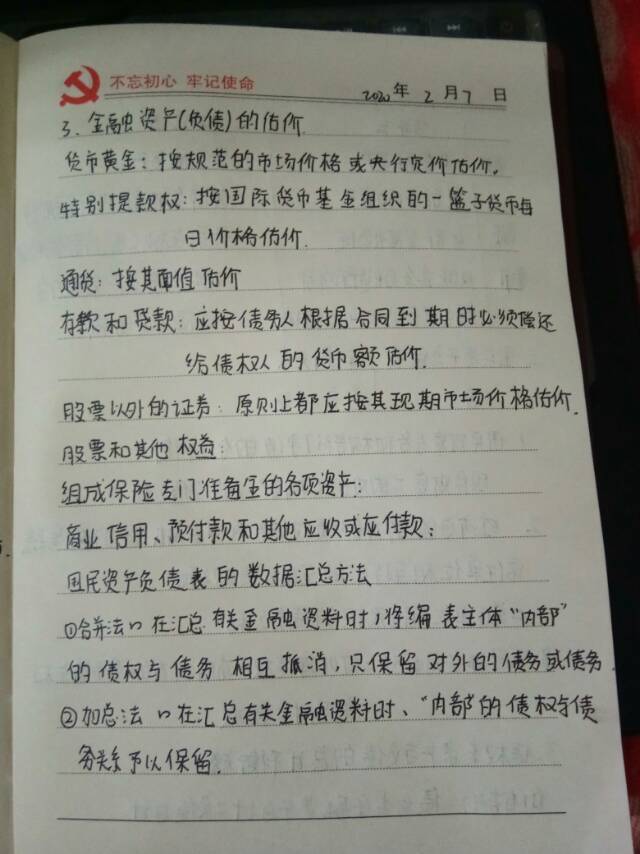 不忘初心 牢记使命
2020年 2月 7日
3、金融资产(负债)的估价
货币黄金：按规范的市场价格或央行定价估价。
特别提款权：按国际货币基金组织的一篮子货币每
日价格估价.
通货：按其面值估价
存款和贷款：应按债务人根据合同到期时必须偿还
给债权人的货币额估价.
股票以外的证券：原则上都应按其现期市场价格估价.
股票和其他权益：
组成保险专门准备金的各项资产：
商业信用、预付款和其他应收或应付款：
国民资产负债表的数据汇总方法
①合并法 在汇总有关金融资料时，将编表主体“内部”
的债权与债务相互抵消，只保留对外的债务或债务.
②加总法 在汇总有关金融资料时、“内部”的债权与债
务关系予以保留.